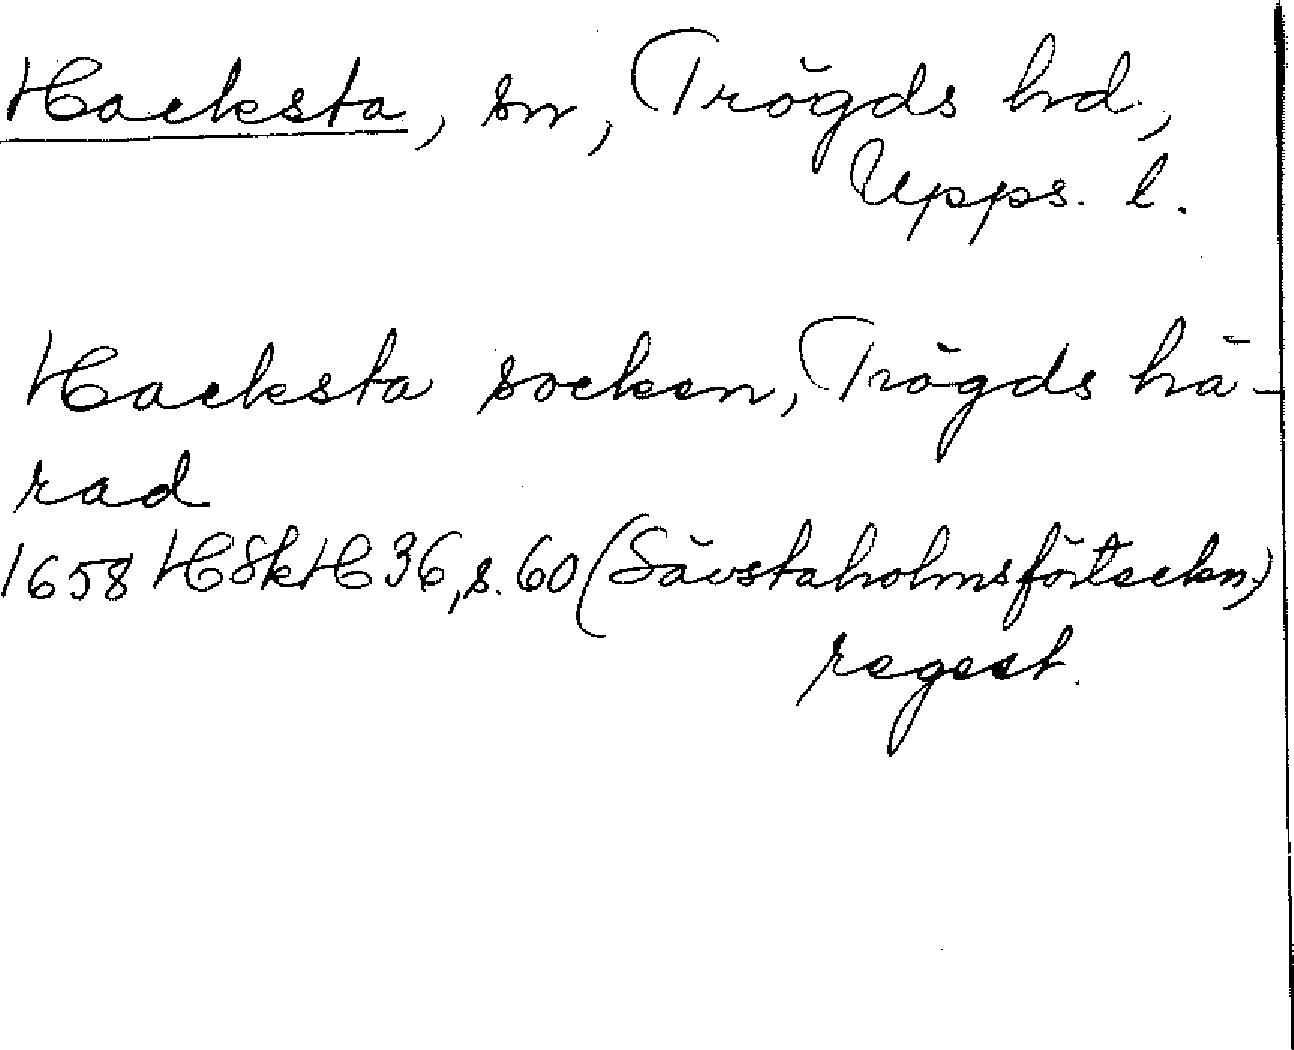 Hacksta, sn, Trögds hd.,
Upps. l.
Hacksta socken, Trögds hä-
rad
1658 HSkH 36, s. 60 (Sävstaholmsförteckn.)
regest.